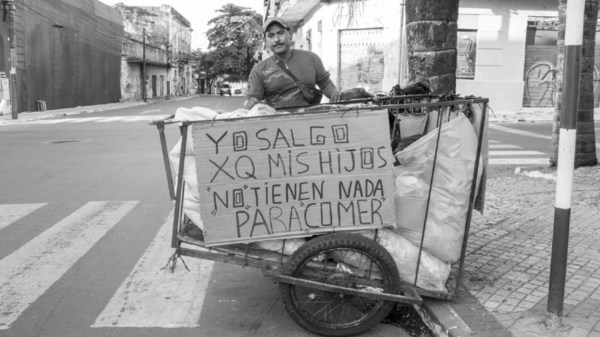 YO SALGO
XQ MIS HIJOS
"NO" TIENEN NADA
"PARA" COMER"